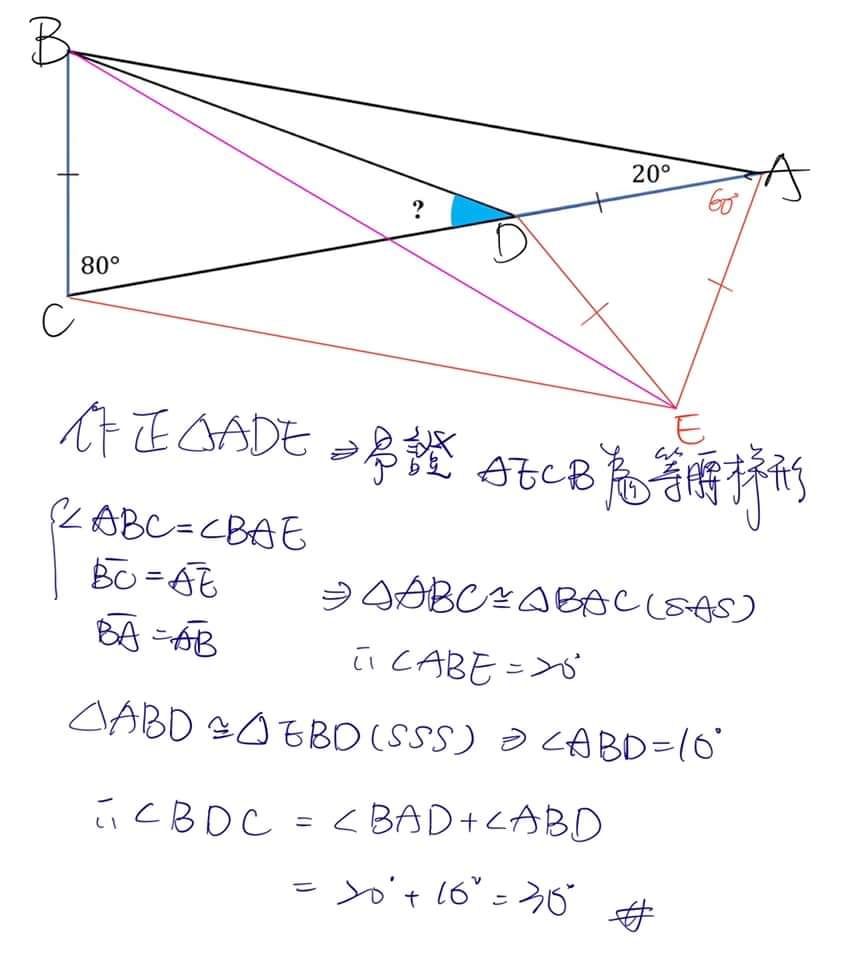 B
20°
A
60°
?
D
80°
C
E
作正△ADE ⇒易證 AECB為等腰梯形
∠ABC=∠BAE
B̅C̅=A̅E̅
⇒△ABC≅△BAC(SAS)
B̅A̅=A̅B̅
∴∠ABE=20°
△ABD≅△EBD(SSS) ⇒∠ABD=10°
∴∠BDC = ∠BAD+∠ABD
= 20°+10°=30° #